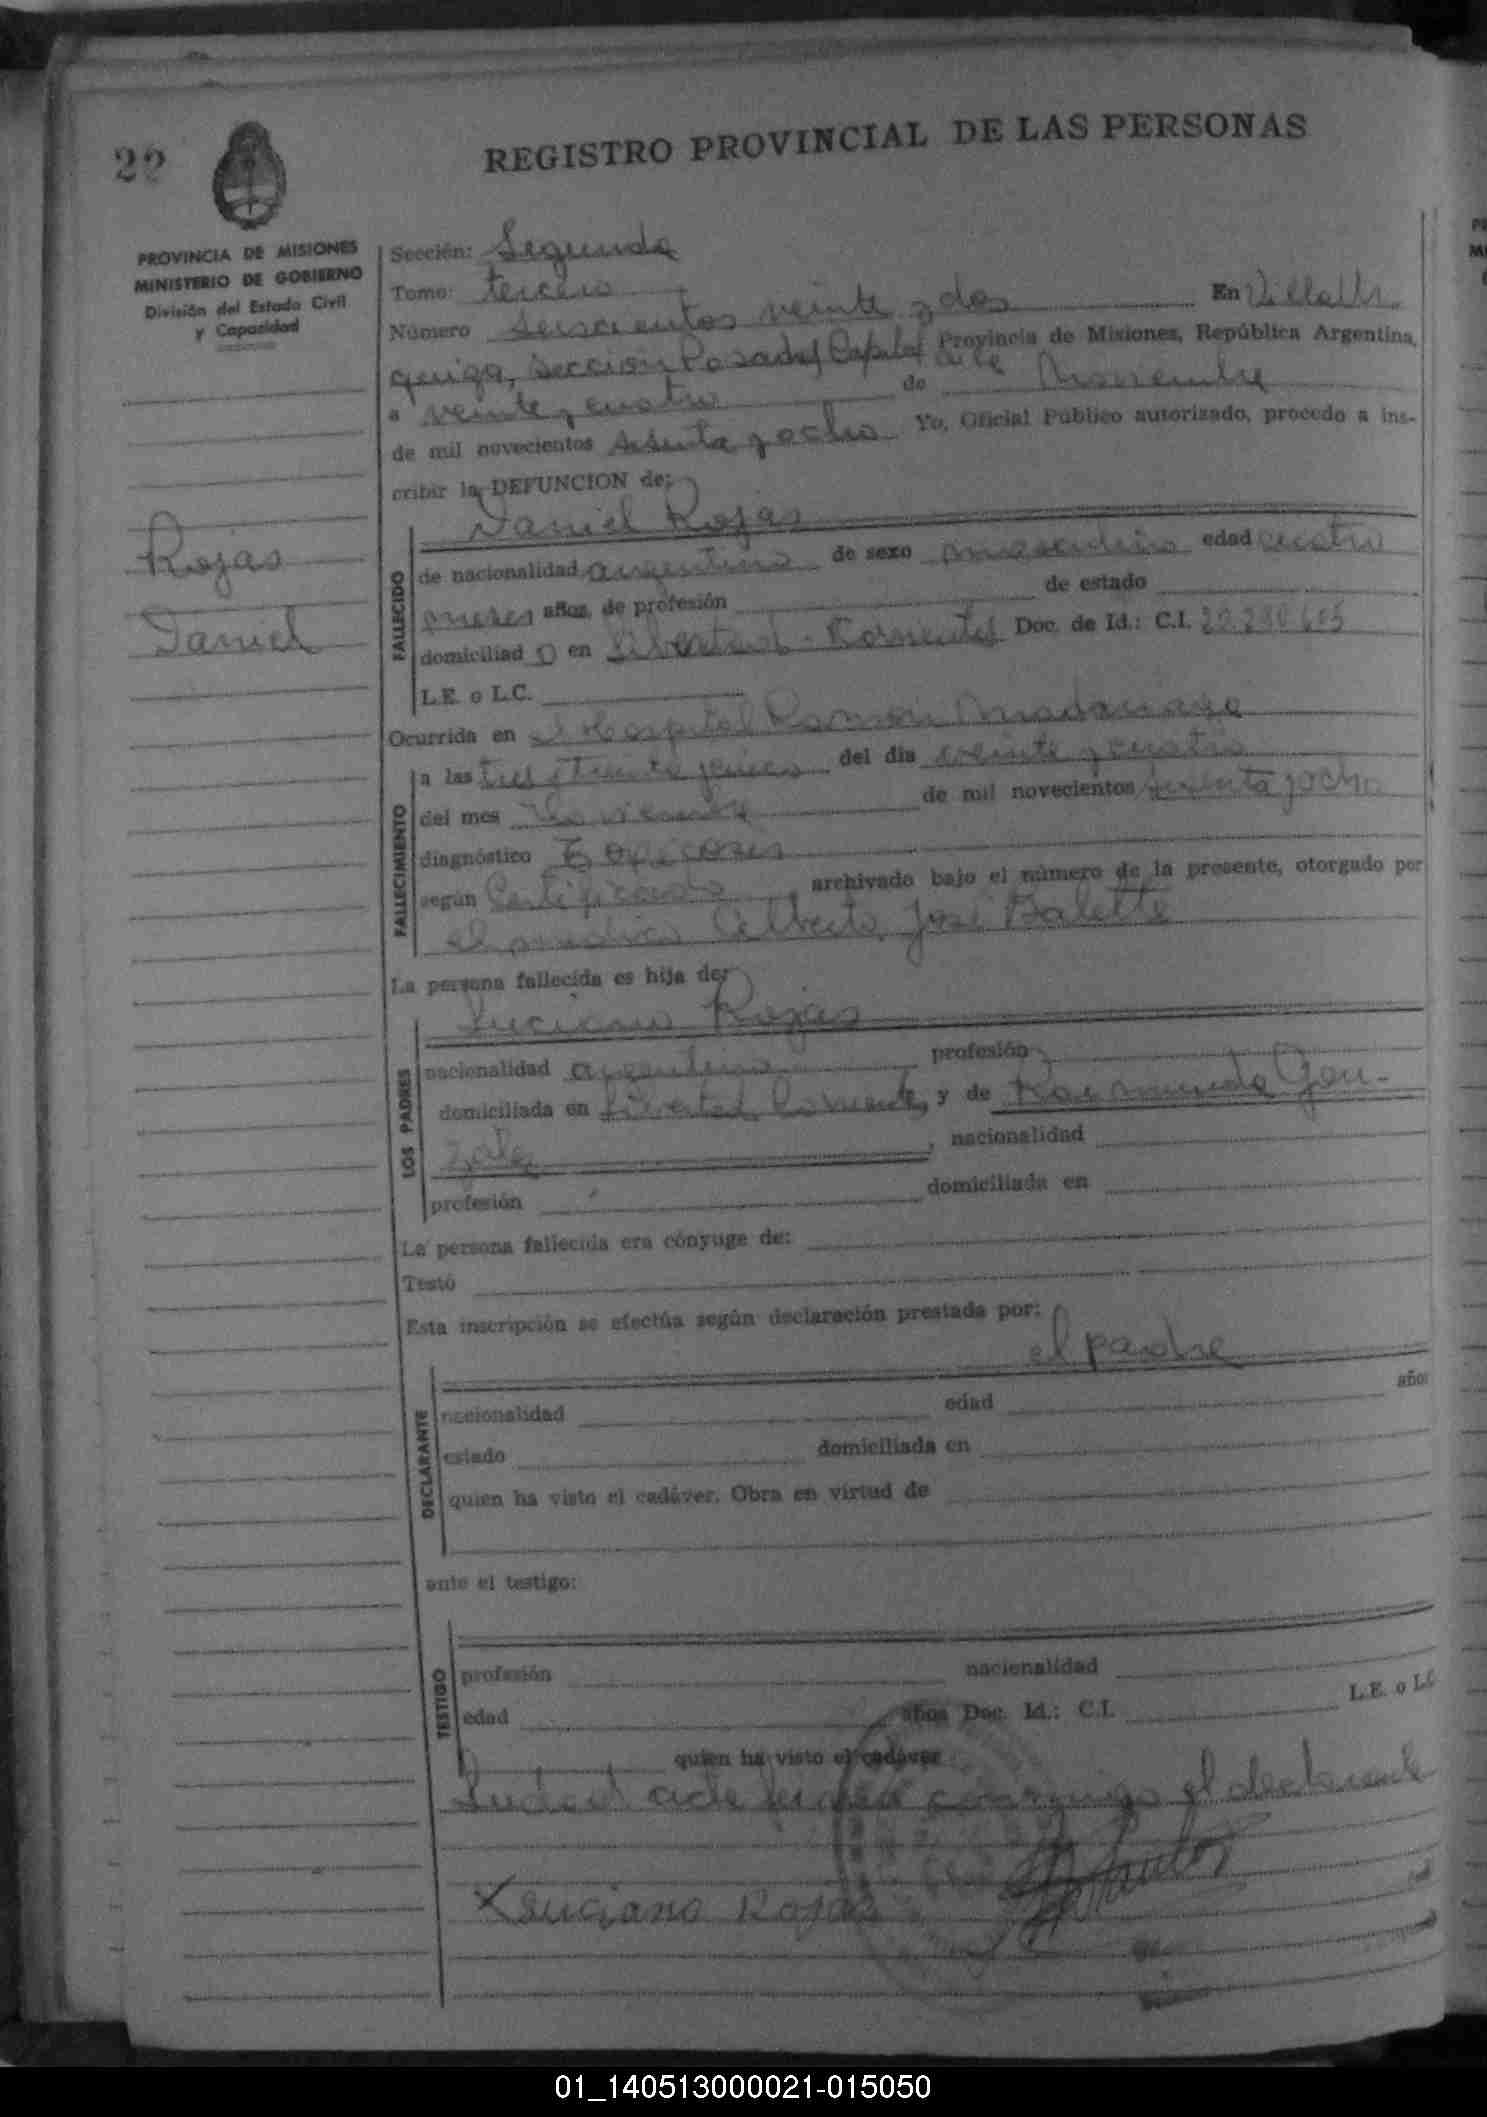 22
REGISTRO PROVINCIAL DE LAS PERSONAS
PROVINCIA DE MISIONES
MINISTERIO DE GOBIERNO
División del Estado Civil
y Capacidad
Rojas
Daniel
Sección: Segunda
Tomo: tercero
Número seiscientos veinte y dos En
Sección Posadas Capital de la Provincia de Misiones, República Argentina,
a veinte y cuatro de Noviembre
de mil novecientos sesenta y ocho Yo, Oficial Público autorizado, procedo a ins-
cribir la DEFUNCION de:
Daniel Rojas
FALLECIDO
de nacionalidad argentino de sexo masculino edad cuatro
meses años, de profesión de estado
domiciliad o en Libertad - Corrientes Doc. de Id.: C.I.
L.E. o L.C.
Ocurrida en el Hospital Ramón Madariaga
FALLECIMIENTO
a las tres y treinta del día veinte y cuatro
del mes Noviembre de mil novecientos sesenta y ocho
diagnóstico
según Certificado archivado bajo el número de la presente, otorgado por
el medico Alberto José
La persona fallecida es hija de:
Luciano Rojas
LOS PADRES
nacionalidad argentino profesión
domiciliada en Libertad Corrientes y de Raimunda Gon-
zalez , nacionalidad
profesión domiciliada en
La persona fallecida era cónyuge de:
Testó
Esta inscripción se efectúa según declaración prestada por:
el padre
DECLARANTE
nacionalidad edad años
estado domiciliada en
quien ha visto el cadáver. Obra en virtud de
ante el testigo:
TESTIGO
profesión nacionalidad
edad años Doc. Id.: C.I. L.E. o L.C
quien ha visto el cadáver
Leida el acta firma conmigo el declarante
Luciano Rojas
01_140513000021-015050